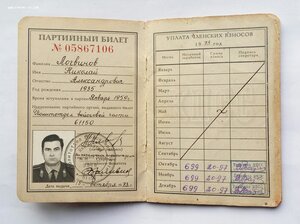 ПАРТИЙНЫЙ БИЛЕТ
№ 05867106
Фамилия Логвинов
Имя Николай
Отчество Александрович
Год рождения 1935
Время вступления в партию Январь 1959г.
Наименование партийного органа, выдавшего билет
Политотдел войсковой части
61150
Дата выдачи
УПЛАТА ЧЛЕНСКИХ ВЗНОСОВ
19 73 год
Месяц
Январь
Февраль
Март
Апрель
Май
Июнь
Июль
Август
Сентябрь
Октябрь 699 20-97
Ноябрь 699 20-97
Декабрь 699 20-97